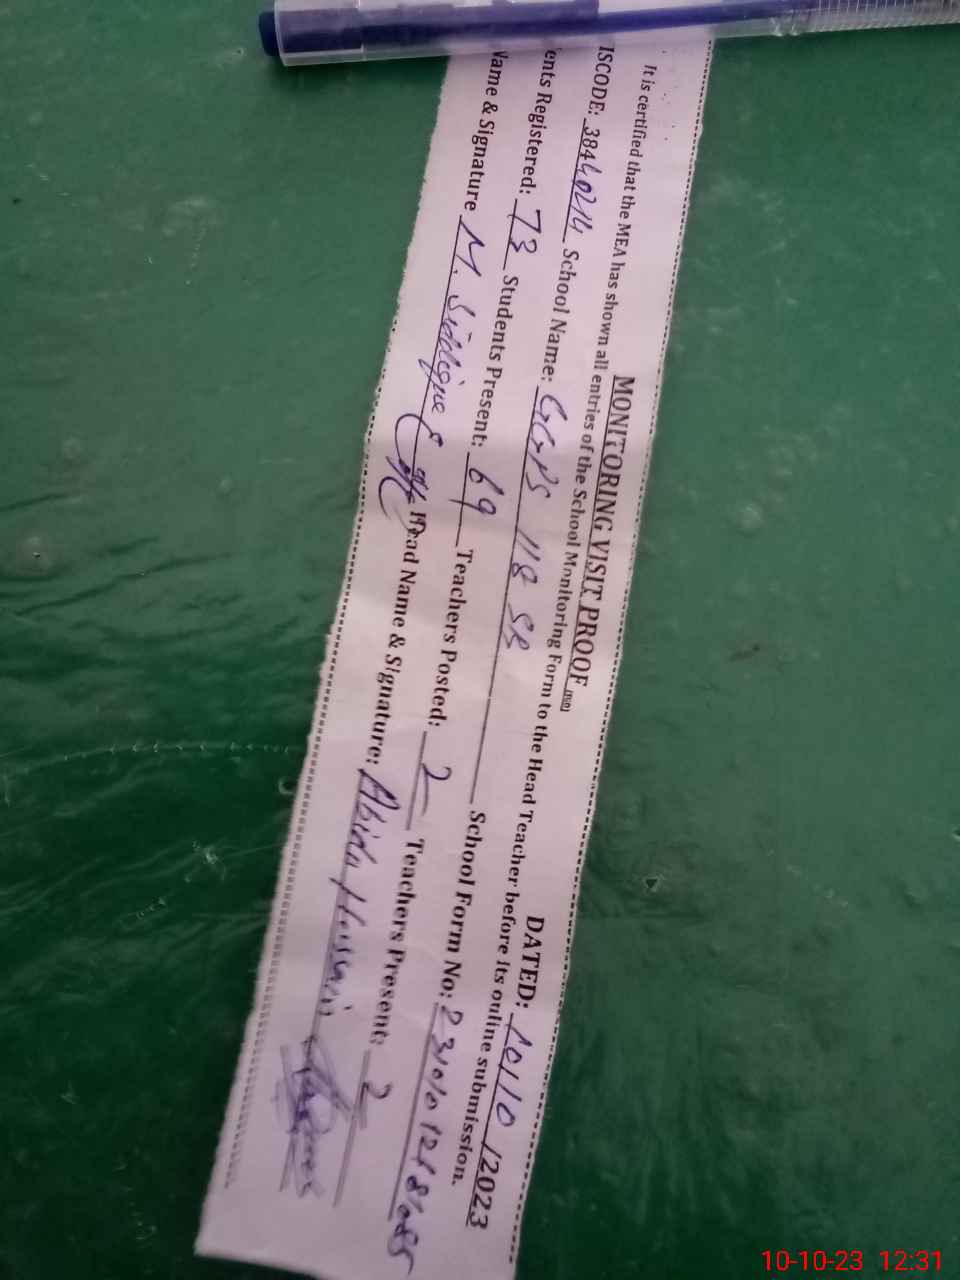 MONITORING VISIT PROOF DATED: 10/10/2023
It is certified that the MEA has shown all entries of the School Monitoring Form to the Head Teacher before its online submission.
ISCODE: 38440214 School Name: GGPS 118 SB School Form No:
ents Registered: 73 Students Present: 69 Teachers Posted: 2 Teachers Present: 2
Name & Signature M. Siddique Head Name & Signature: Abida Hussain
10-10-23 12:31